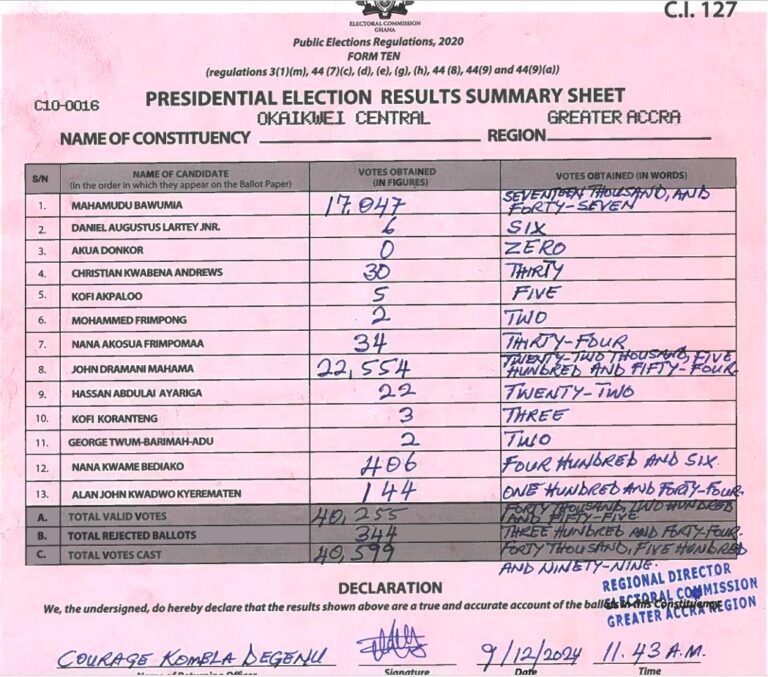 C.I. 127
ELECTORAL COMMISSION
GHANA
Public Elections Regulations, 2020
FORM TEN
(regulations 3(1)(m), 44 (7)(c), (d), (e), (g), (h), 44 (8), 44(9) and 44(9)(a))
C10-0016 PRESIDENTIAL ELECTION RESULTS SUMMARY SHEET
OKAIKWEI CENTRAL GREATER ACCRA
NAME OF CONSTITUENCY REGION
S/N NAME OF CANDIDATE (In the order in which they appear on the Ballot Paper) VOTES OBTAINED (IN FIGURES) VOTES OBTAINED (IN WORDS)
1. MAHAMUDU BAWUMIA 17,047 SEVENTEEN THOUSAND, AND FORTY-SEVEN
2. DANIEL AUGUSTUS LARTEY JNR. 6 SIX
3. AKUA DONKOR 0 ZERO
4. CHRISTIAN KWABENA ANDREWS 30 THIRTY
5. KOFI AKPALOO 5 FIVE
6. MOHAMMED FRIMPONG 2 TWO
7. NANA AKOSUA FRIMPOMAA 34 THIRTY-FOUR
8. JOHN DRAMANI MAHAMA 22,554 TWENTY-TWO THOUSAND, FIVE HUNDRED AND FIFTY-FOUR
9. HASSAN ABDULAI AYARIGA 22 TWENTY-TWO
10. KOFI KORANTENG 3 THREE
11. GEORGE TWUM-BARIMAH-ADU 2 TWO
12. NANA KWAME BEDIAKO 406 FOUR HUNDRED AND SIX
13. ALAN JOHN KWADWO KYEREMATEN 144 ONE HUNDRED AND FORTY-FOUR.
A. TOTAL VALID VOTES 40,255 FORTY THOUSAND, TWO HUNDRED AND FIFTY-FIVE.
B. TOTAL REJECTED BALLOTS 344 THREE HUNDRED AND FORTY-FOUR.
C. TOTAL VOTES CAST 40,599 FORTY THOUSAND, FIVE HUNDRED AND NINETY-NINE.
REGIONAL DIRECTOR
ELECTORAL COMMISSION
GREATER ACCRA REGION
DECLARATION
We, the undersigned, do hereby declare that the results shown above are a true and accurate account of the ballots in this Constituency
COURAGE KOMBLA DEGENU 9/12/2024 11.43 A.M.
Name of Returning Officer Signature Date Time